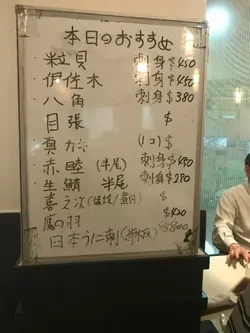 本日のおすすめ
粒貝 刺身$450
伊佐木 刺身$450
八角 刺身$380
目張 $
真カキ (1コ) $
赤睦 (半尾) 刺身$450
生鯖 半尾 刺身$290
喜之次 (塩焼/煮付) $
鷹の羽 $400
日本うに刺 (半板) $800